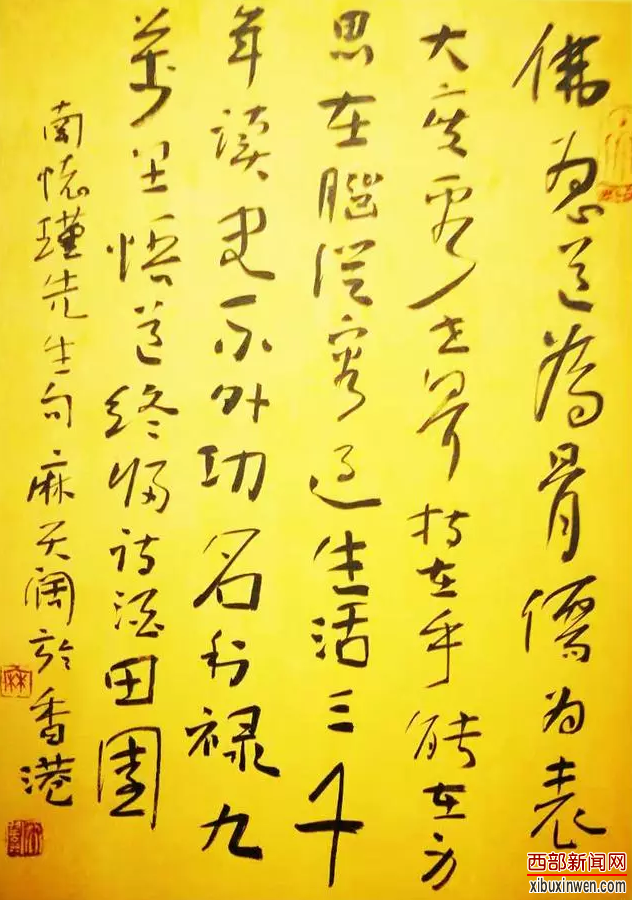 佛为心道為骨儒为表
大度看世界技在手能在身
思在腦從容过生活三千
年读史不外功名利禄九
萬里悟道终归诗酒田園
南懷瑾先生句麻天阔於香港
麻
西部新闻网
xibuxinwen.com